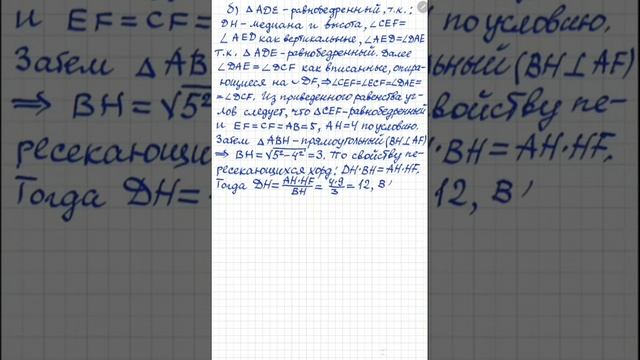 б) △ADE-равнобедренный, т.к.
DH-медиана и высота, ∠CEF=
∠AED как вертикальные, ∠AED=∠DAE
т.к. △ADE-равнобедренный. Далее
∠DAE=∠DCF как вписанные, опира-
ющиеся на ◡DF, ⇒∠CEF=∠ECF=∠DAE=
=∠DCF. Из приведенного равенства уг-
лов следует, что △CEF-равнобедренный
и EF=CF=AB=5, AH=4 по условию.
Затем △ABH-прямоугольный (BH⊥AF)
⇒ BH=√5²-4²=3. По свойству пе-
ресекающихся хорд: DH·BH=AH·HF.
Тогда DH=AH·HF/BH=4·9/3=12, В